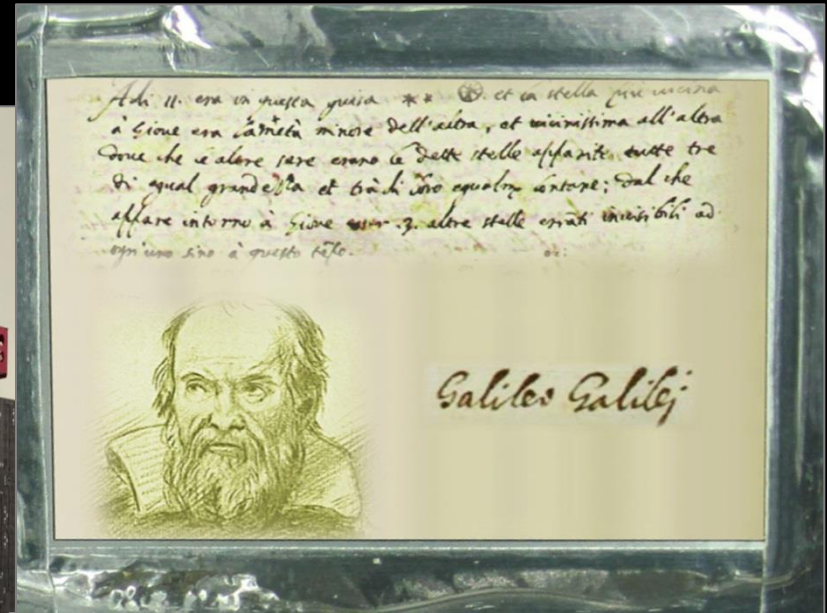 Adi 11. era in questa guisa ** et la stella più vicina
à Giove era la metà minore dell'altra, et vicinissima all'altra
dove che le altre sere erano le dette stelle apparite tutte tre
di egual grandezza et trà di loro egualm lontane; dal che
appare intorno à Giove esser .3. altre stelle erranti invisibili ad
ogn'uno sino à questo tempo.
Galileo Galilej